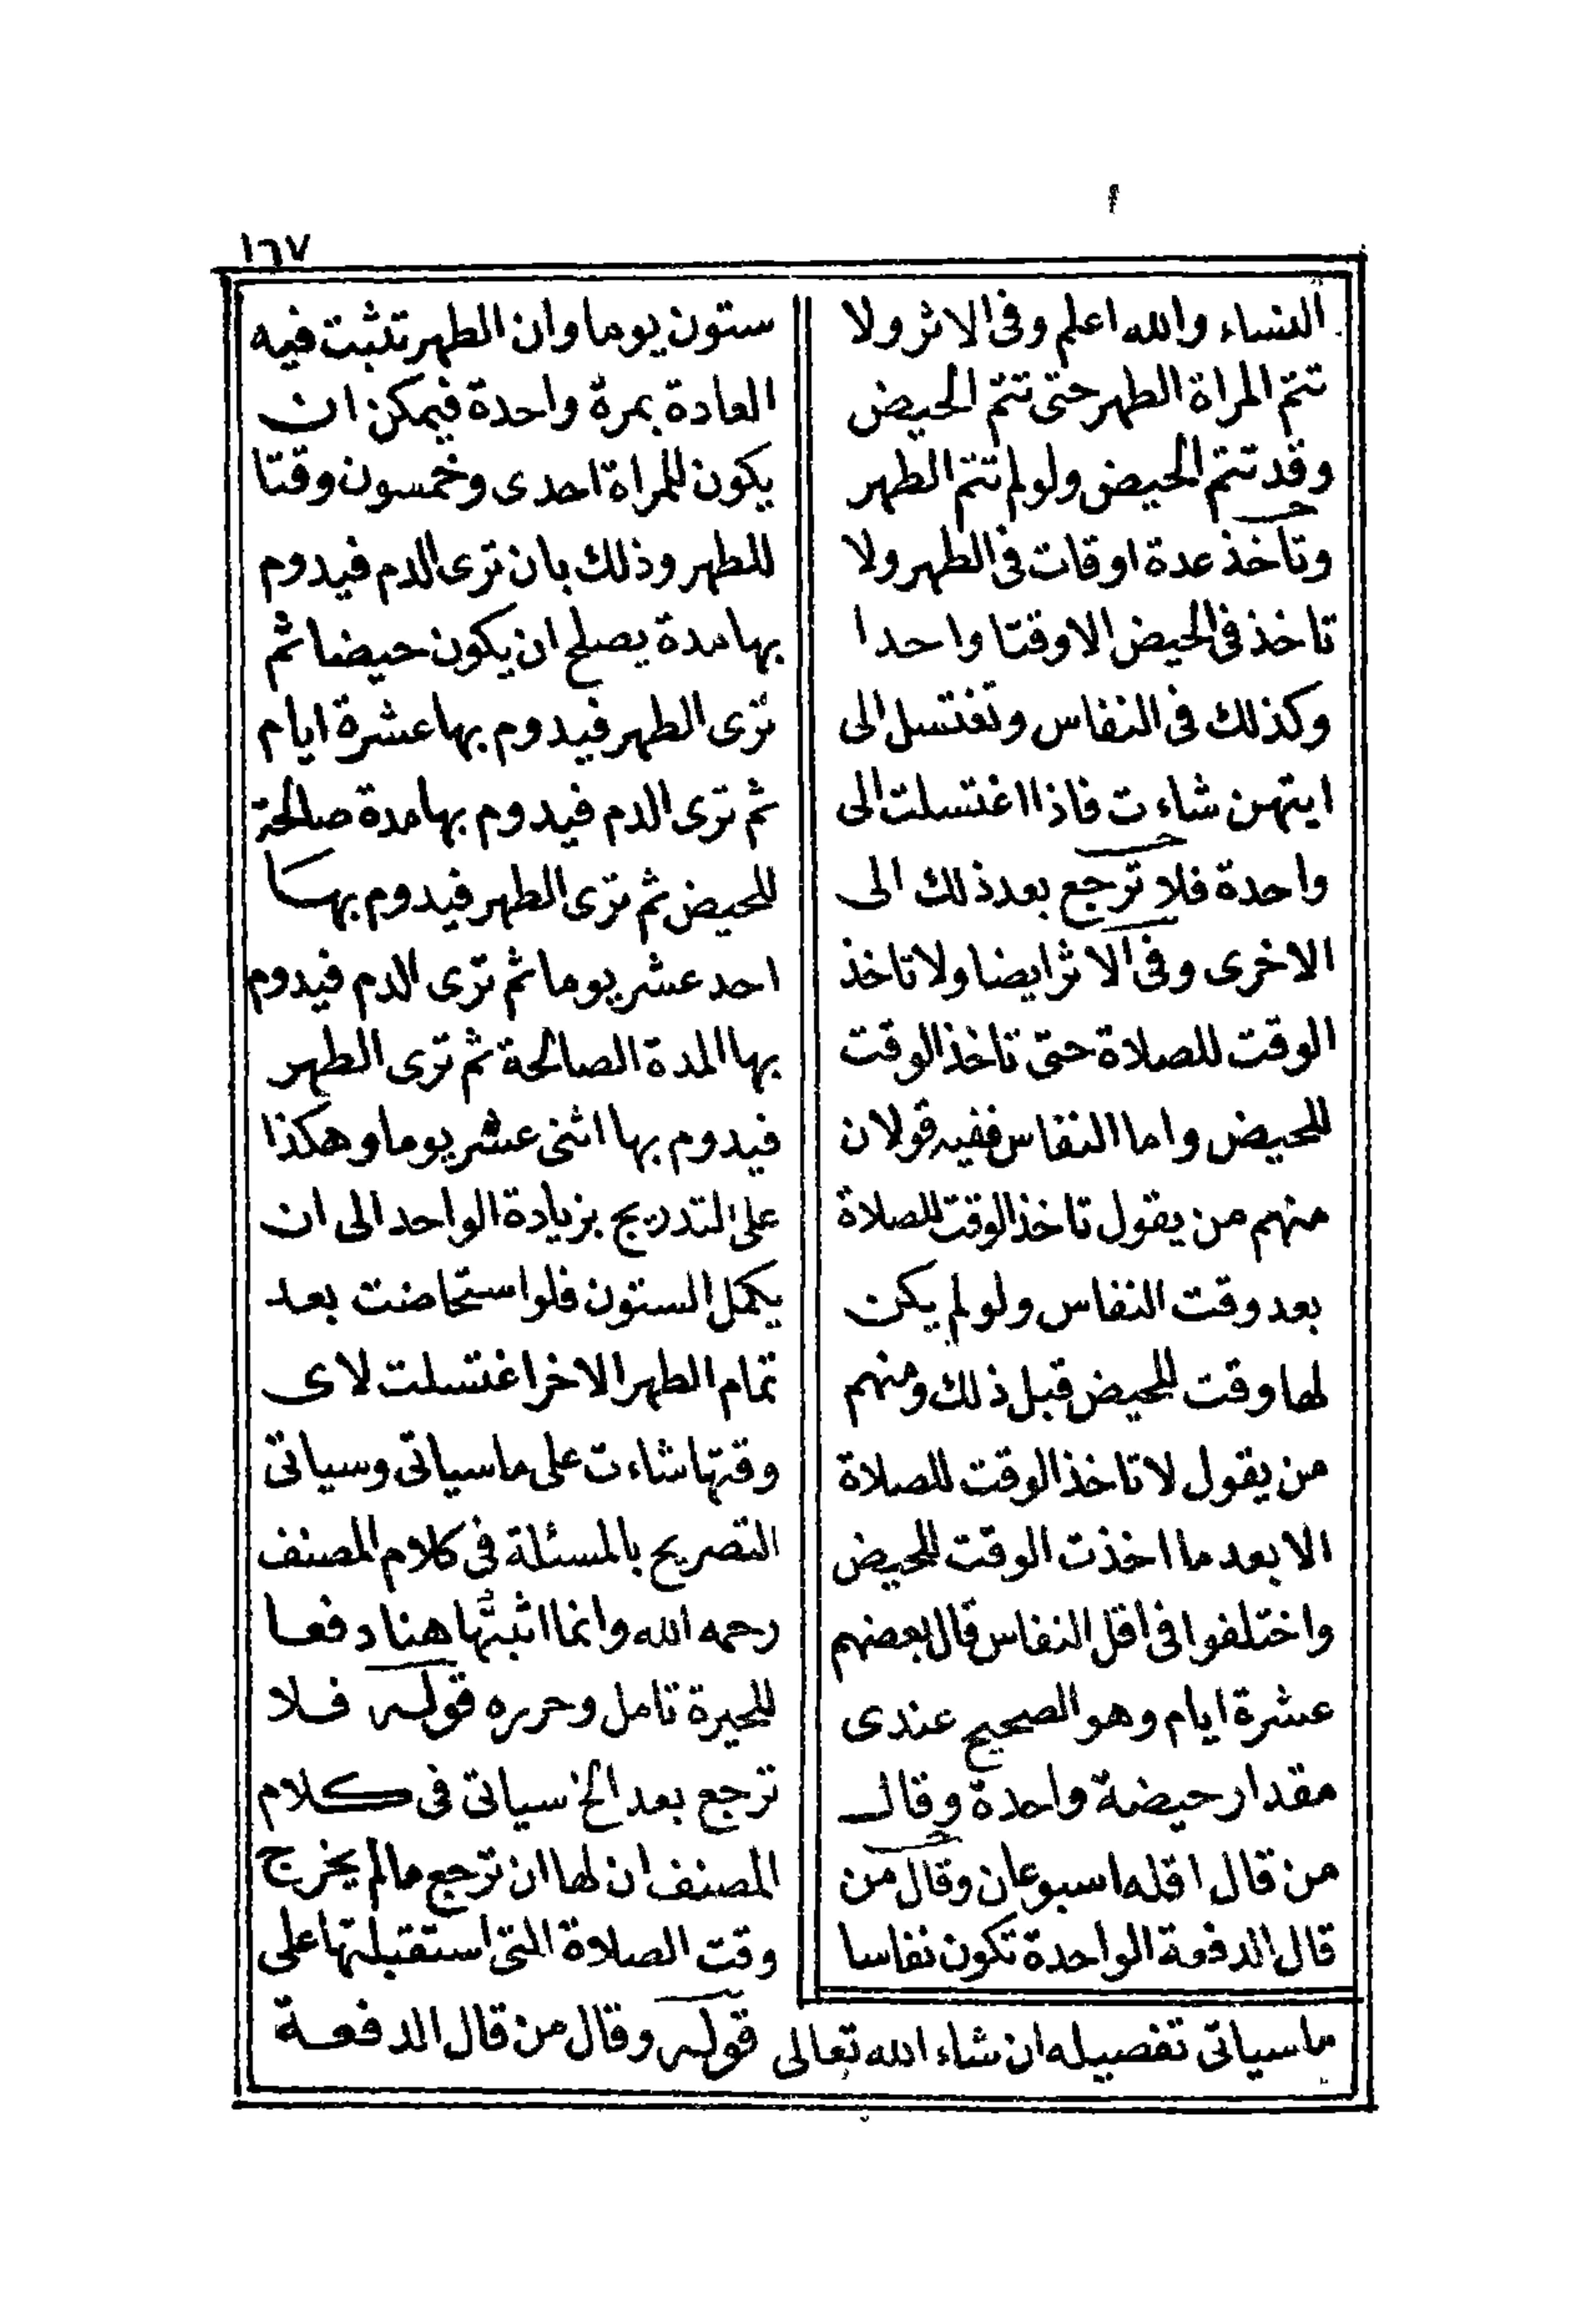 ١٦٧
النساء والله اعلم وفى الاثر ولا
تتم المراة الطهر حتى تتم الحيض
وقد تتم الحيض ولو لم تتم الطهر
وتاخذ عدة اوقات فى الطهر ولا
تاخذ فى الحيض الا وقتا واحدا
وكذلك فى النفاس وتغتسل الى
ايتهن شاءت فاذا اغتسلت الى
واحدة فلا ترجع بعد ذلك الى
الاخرى وفى الاثر ايضا ولا تاخذ
الوقت للصلاة حتى تاخذ الوقت
للحيض واما النفاس ففيه قولان
منهم من يقول تاخذ الوقت للصلاة
بعد وقت النفاس ولو لم يكن
لها وقت للحيض قبل ذلك ومنهم
من يقول لا تاخذ الوقت للصلاة
الا بعد ما اخذت الوقت للحيض
واختلفوا فى اقل النفاس قال بعضهم
عشرة ايام وهو الصحيح عندى
مقدار حيضة واحدة وقال
من قال اقله اسبوعان وقال من
قال الدفعة الواحدة تكون نفاسا
ستون يوما وان الطهر تثبت فيه
العادة بمرة واحدة فيمكن ان
يكون للمراة احدى وخمسون وقتا
للطهر وذلك بان ترى الدم فيدوم
بها مدة يصلح ان يكون حيضا ثم
ترى الطهر فيدوم بها عشرة ايام
ثم ترى الدم فيدوم بها مدة صالحة
للحيض ثم ترى الطهر فيدوم بها
احد عشر يوما ثم ترى الدم فيدوم
بها المدة الصالحة ثم ترى الطهر
فيدوم بها اثنى عشر يوما وهكذا
على التدريج بزيادة الواحد الى ان
يكمل الستون فلو استحاضت بعد
تمام الطهر الاخر اغتسلت لاى
وقتها شاءت على ما سياتى وسياتى
التصريح بالمسئلة فى كلام المصنف
رحمه الله وانما اثبتُّها هنا دفعا
للحيرة تامل وحرره قوله فلا
ترجع بعد الخ سياتى فى كلام
المصنف ان لها ان ترجع ما لم يخرج
وقت الصلاة التى استقبلتها على
ما سياتى تفصيله ان شاء الله تعالى قوله وقال من قال الدفعة